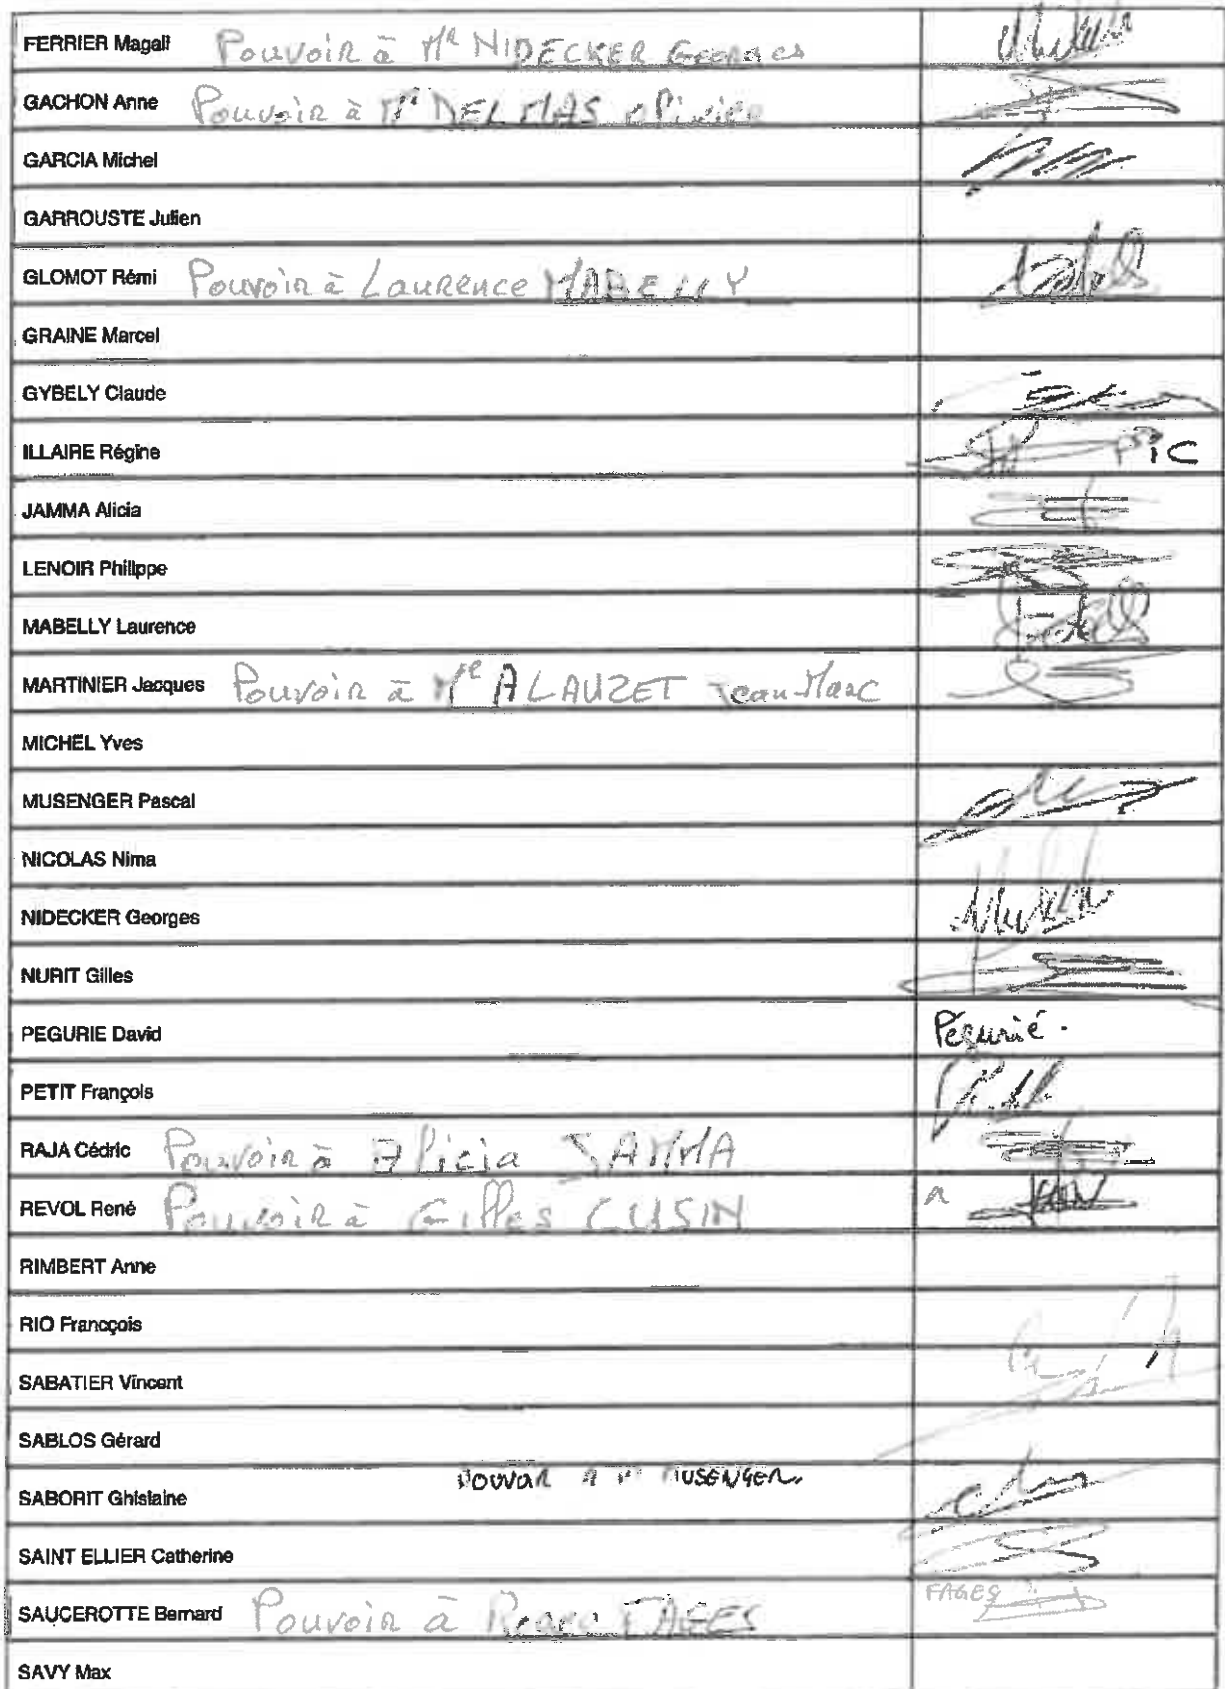 FERRIER Magali Pouvoir à Mr NIDECKER Georges
GACHON Anne Pouvoir à Mr DELMAS Olivier
GARCIA Michel
GARROUSTE Julien
GLOMOT Rémi Pouvoir à Laurence MABELLY
GRAINE Marcel
GYBELY Claude
ILLAIRE Régine PIC
JAMMA Alicia
LENOIR Philippe
MABELLY Laurence
MARTINIER Jacques Pouvoir à Mr ALAUZET Jean-Marc
MICHEL Yves
MUSENGER Pascal
NICOLAS Nima
NIDECKER Georges
NURIT Gilles
PEGURIE David Pegurié.
PETIT François
RAJA Cédric Pouvoir à Alicia JAMMA
REVOL René Pouvoir à Gilles CUSIN
RIMBERT Anne
RIO Francçois
SABATIER Vincent
SABLOS Gérard
SABORIT Ghislaine POUVOIR A Mr MUSENGER
SAINT ELLIER Catherine
SAUCEROTTE Bernard Pouvoir à FAGES FAGES
SAVY Max